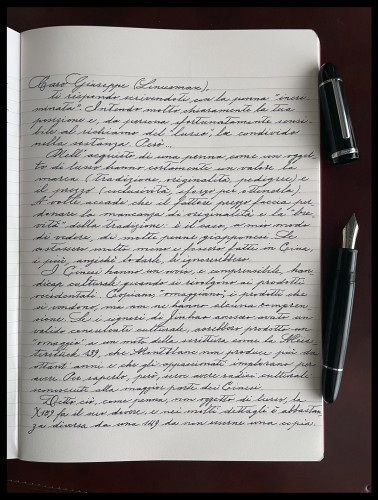 Caro Giuseppe (Linuxmax),
ti rispondo scrivendoti con la penna "incri-
minata". Intendo molto chiaramente la tua
posizione e, da persona fortunatamente sensi-
bile al richiamo del "lusso", la condivido
nella sostanza. Però...
Nell'acquisto di una penna come un ogget-
to di lusso hanno certamente un valore la
marca (tradizione, originalità, pedigree) e
il prezzo (esclusività, sforzo per ottenerla).
A volte accade che il fattore prezzo faccia per-
donare la mancanza di originalità e la "bre-
vità" della tradizione: è il caso, a mio modo
di vedere, di molte penne giapponesi. Se
costassero molto meno e fossero fatte in Cina,
i più, anziché lodarle, le ignorerebbero.
I Cinesi hanno un ovvio, e comprensibile, han-
dicap culturale quando si rivolgono ai prodotti
occidentali. Copiano, "omaggiano", i prodotti che
si vendono, ma non ne hanno alcuna compren-
sione. Se i signori di Jinhao avessero avuto un
valido consulente culturale, avrebbero prodotto un
"omaggio" a un mito della scrittura come la Meis-
terstück 139, che Montblanc non produce più da
ottant'anni e che gli appassionati smaniano per
avere. Per saperlo, però, devi avere radici culturali
sconosciute alla maggior parte dei Cinesi.
Detto ciò, come penna, non oggetto di lusso, la
X159 fa il suo dovere, e nei molti dettagli è abbastan-
za diversa da una 149 da non esserne una copia.